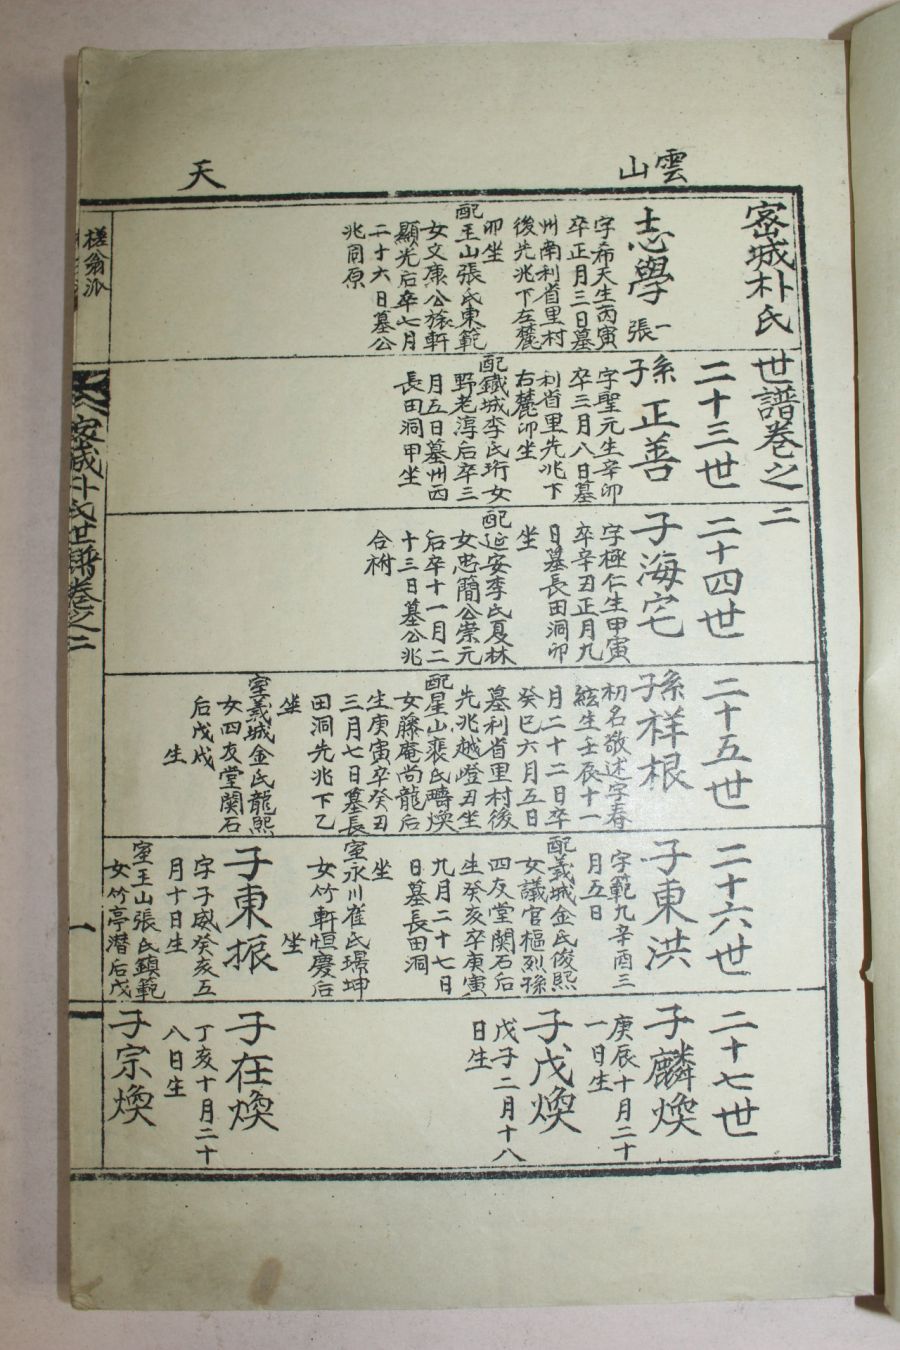 雲山
天
密城朴氏世譜卷之二
志學
一張
字希天生丙寅
卒正月三日墓
州南利省里村
後先兆下左麓
卯坐
配玉山張氏東範
女文康公旅軒
顯光后卒七月
二十六日墓公
兆同原
二十三世
孫正善
子
字聖元生辛卯
卒三月八日墓
利省里先兆下
右麓卯坐
配鐵城李氏珩女
野老淳后卒三
月五日墓州西
長田洞甲坐
二十四世
子海宅
字極仁生甲寅
卒辛丑正月九
日墓長田洞卯
坐
配延安李氏夏林
女忠簡公崇元
后卒十一月二
十三日墓公兆
合祔
二十五世
孫祥根
子
初名敬述字春
絃生壬辰十一
月二十二日卒
癸巳六月五日
墓利省里村後
先兆越嶝丑坐
配星山裵氏疇煥
女藤庵尚龍后
生庚寅卒癸丑
三月七日墓長
田洞先兆下乙
坐
室義城金氏龍熙
女四友堂關石
后戊戌
生
二十六世
子東洪
字範九辛酉三
月五日
配義城金氏俊熙
女議官樞烈孫
四友堂關石后
生癸亥卒庚寅
九月二十七日
日墓長田洞
坐
室永川崔氏璟坤
女竹軒恒慶后
坐
子東振
字子威癸亥五
月十日生
室玉山張氏鎮範
女竹亭潛后戊
二十七世
子麟煥
庚辰十月二十
一日生
子戊煥
戊子二月十八
日生
子在煥
丁亥十月二十
八日生
子宗煥
槎翁派
密城朴氏世譜卷之二
一